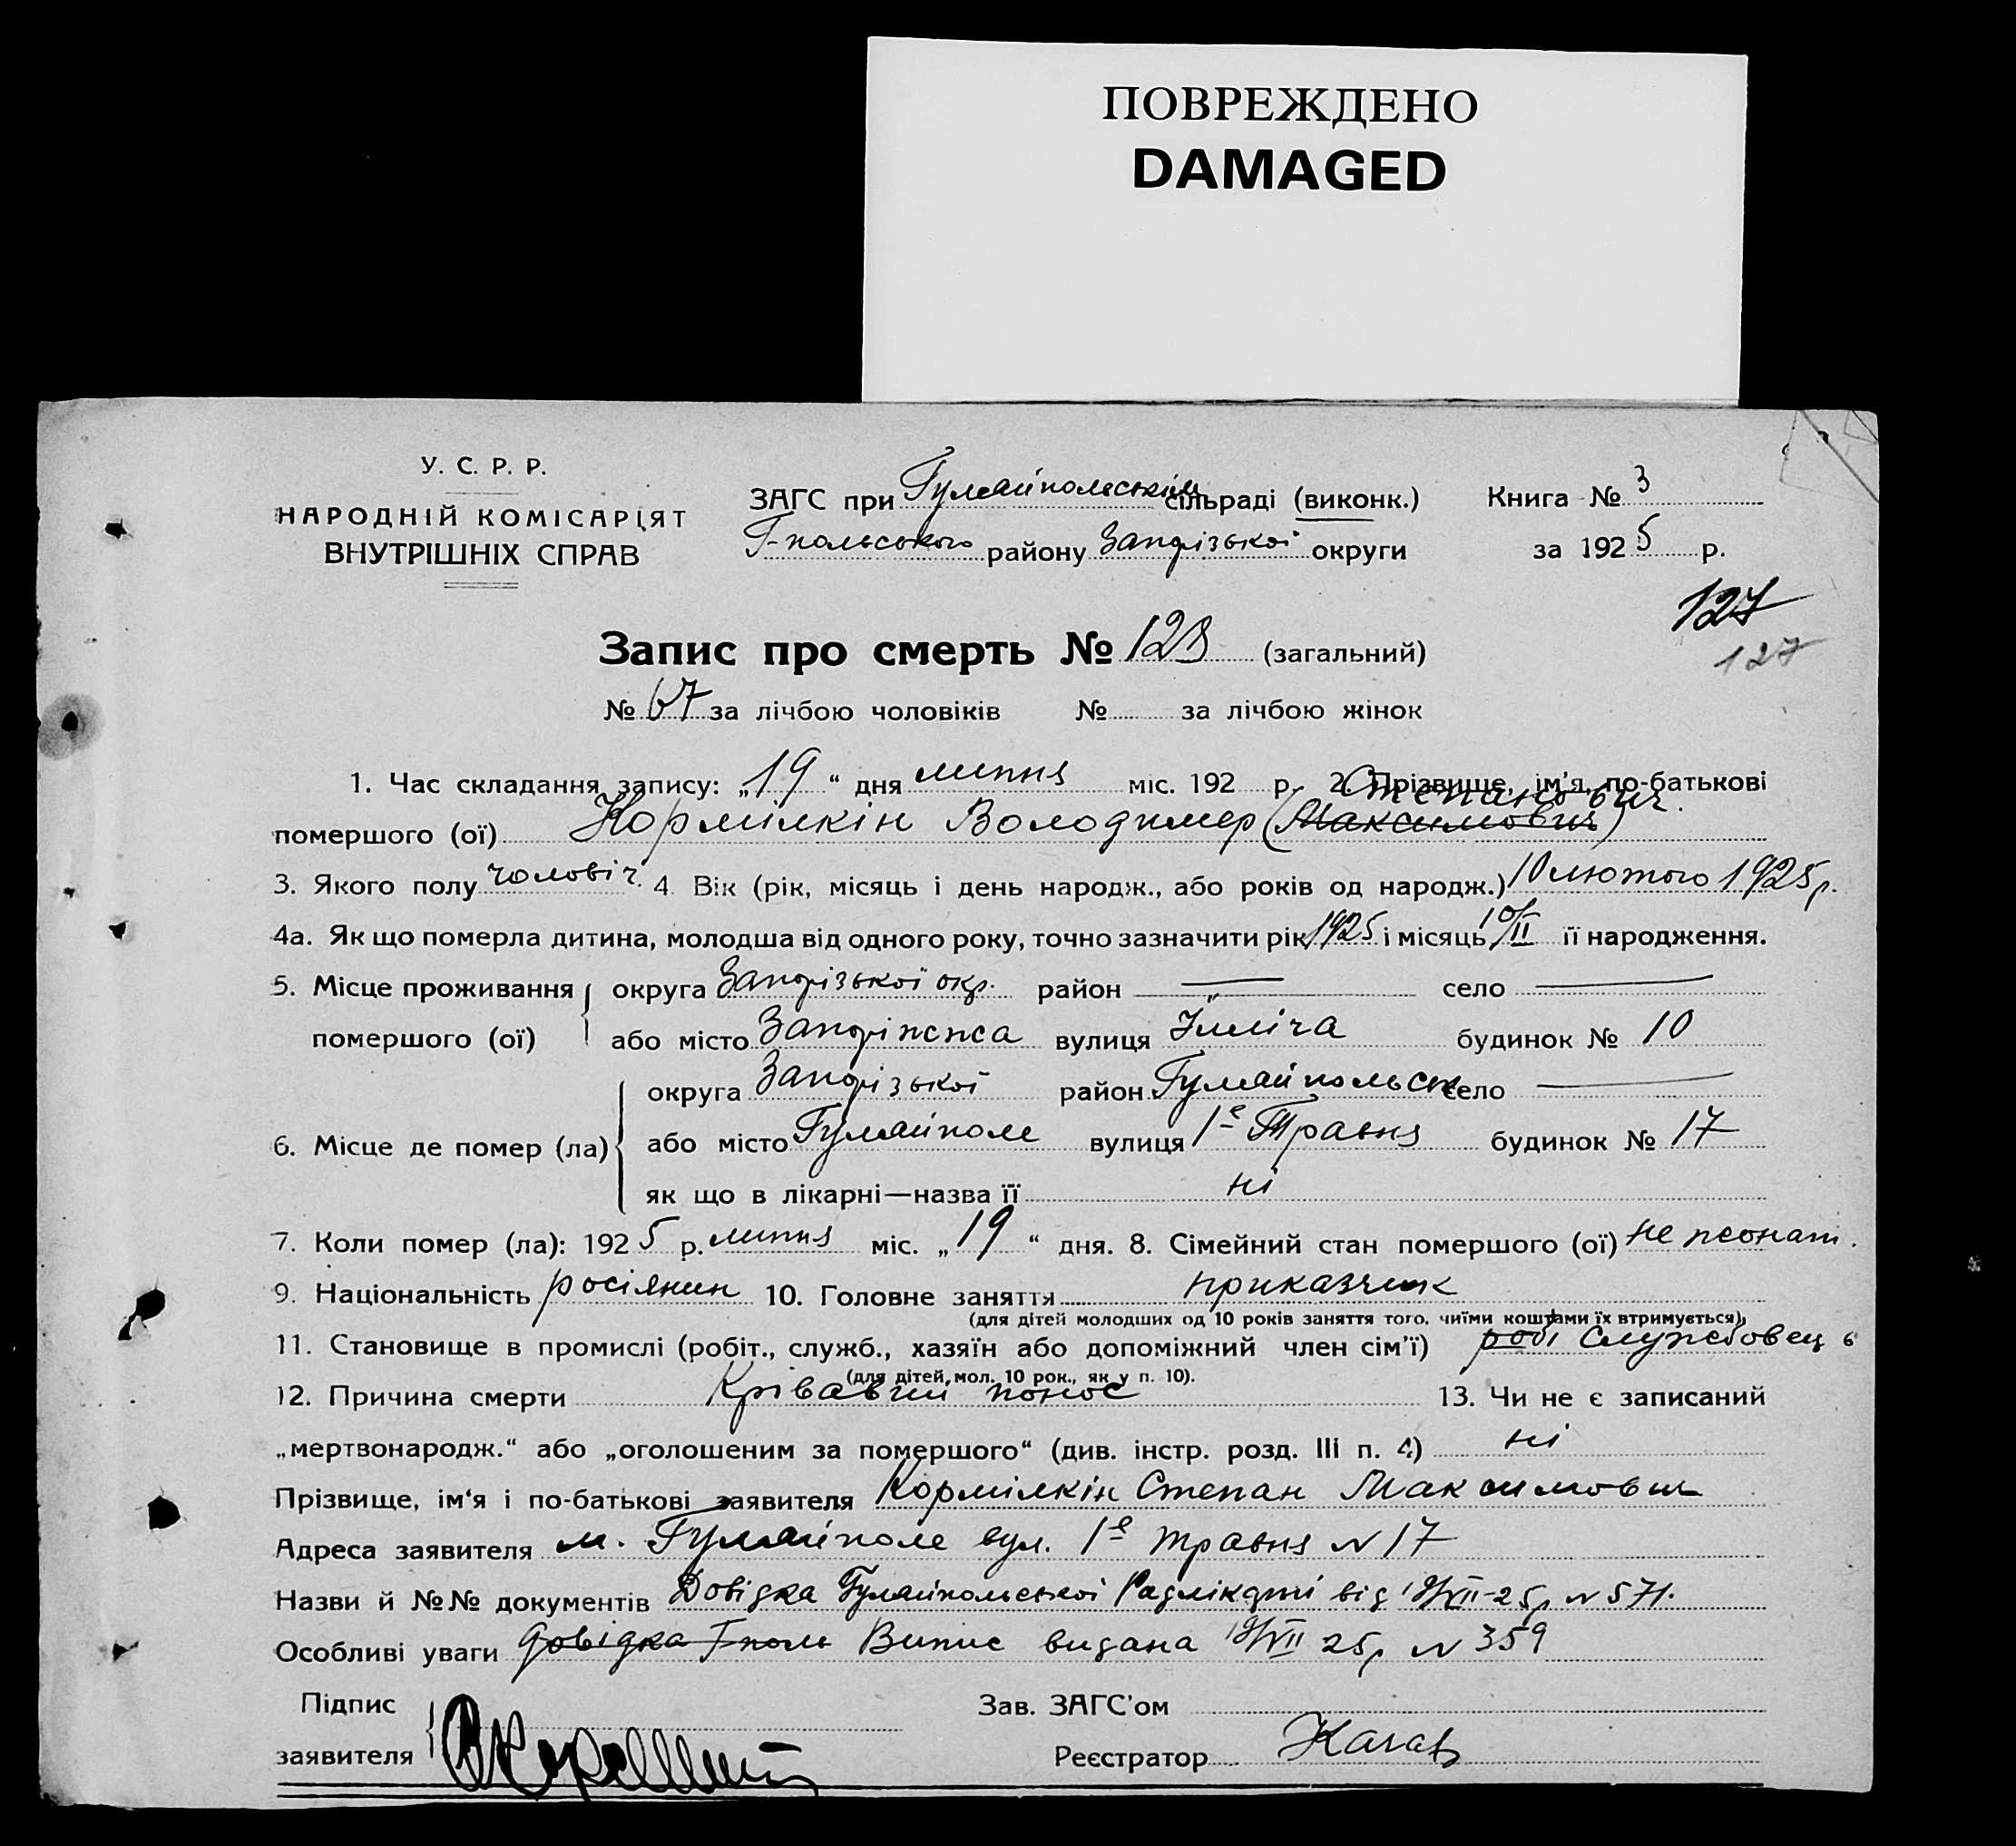 ПОВРЕЖДЕНО
DAMAGED
У. С. Р. Р.
НАРОДНІЙ КОМІСАРІЯТ
ВНУТРІШНІХ СПРАВ
ЗАГС при Гуляйпольськім сільраді (виконк.) Книга № 3
Г-польського району Запорізької округи за 1925 р.
127
127
Запис про смерть № 123 (загальний)
№ 67 за лічбою чоловіків № за лічбою жінок
1. Час складання запису: „19“ дня липня міс. 192 р. 2. Прізвище, ім'я, по-батькові
Степанович
помершого (ої) Кормілкін Володимер (Максимович)
3. Якого полу чоловіч. 4. Вік (рік, місяць і день народж., або років од народж.) 10 лютого 1925 р.
4а. Як що померла дитина, молодша від одного року, точно зазначити рік 1925 і місяць 10/II її народження.
5. Місце проживання помершого (ої) округа Запорізької окр. район — село —
або місто Запоріжжа вулиця Ілліча будинок № 10
6. Місце де помер (ла) округа Запорізької район Гуляйпольськ село —
або місто Гуляйполе вулиця 1е Травня будинок № 17
як що в лікарні—назва її ні
7. Коли помер (ла): 1925 р. липня міс. „19“ дня. 8. Сімейний стан помершого (ої) не жонат.
9. Національність росіянин 10. Головне заняття приказчик
(для дітей молодших од 10 років заняття того, чиїми коштами їх втримується)
11. Становище в промислі (робіт., служб., хазяїн або допоміжний член сім'ї) робі службовец
(для дітей мол. 10 рок., як у п. 10).
12. Причина смерти Крівавий понос 13. Чи не є записаний
„мертвонародж.“ або „оголошеним за помершого“ (див. інстр. розд. III п. 4) ні
Прізвище, ім'я і по-батькові заявителя Кормілкін Степан Максимович
Адреса заявителя м. Гуляйполе вул. 1е травня N 17
Назви й №№ документів Довідка Гуляйпольської від 19/VII-25р N 571.
Особливі уваги довідка Гполь Випис видана 19/VII 25р N 359
Підпис заявителя
Зав. ЗАГС'ом
Реєстратор